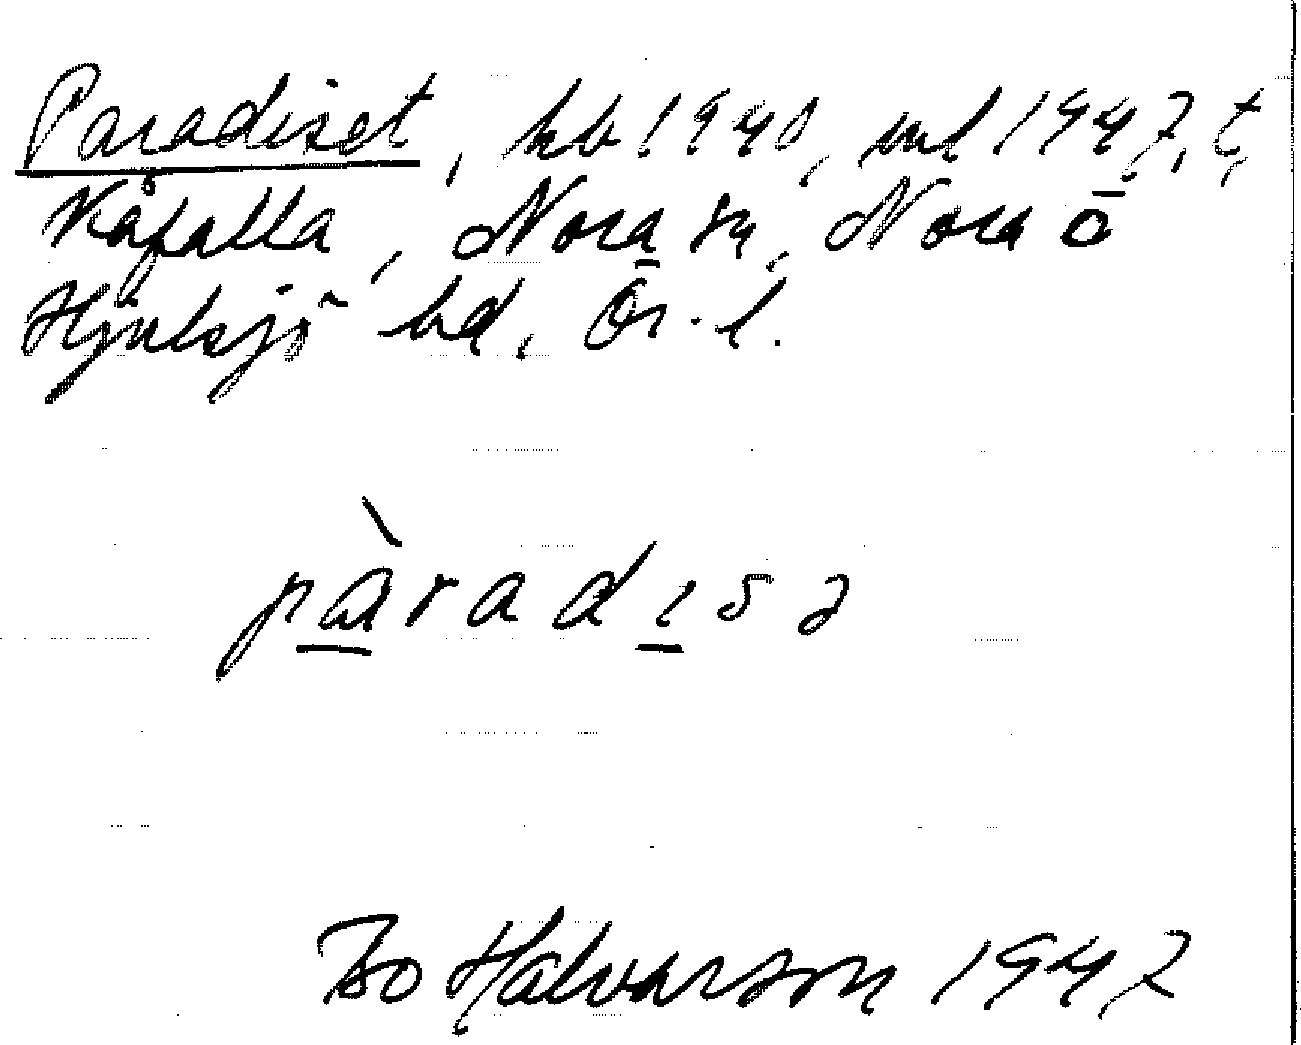 Paradiset, kb 1940, uml 1947, t.
Kåfalla, Nora sn, Nora o
Hjulsjö bd, Ör. l.
pàradisə
Bo Halvarson 1947